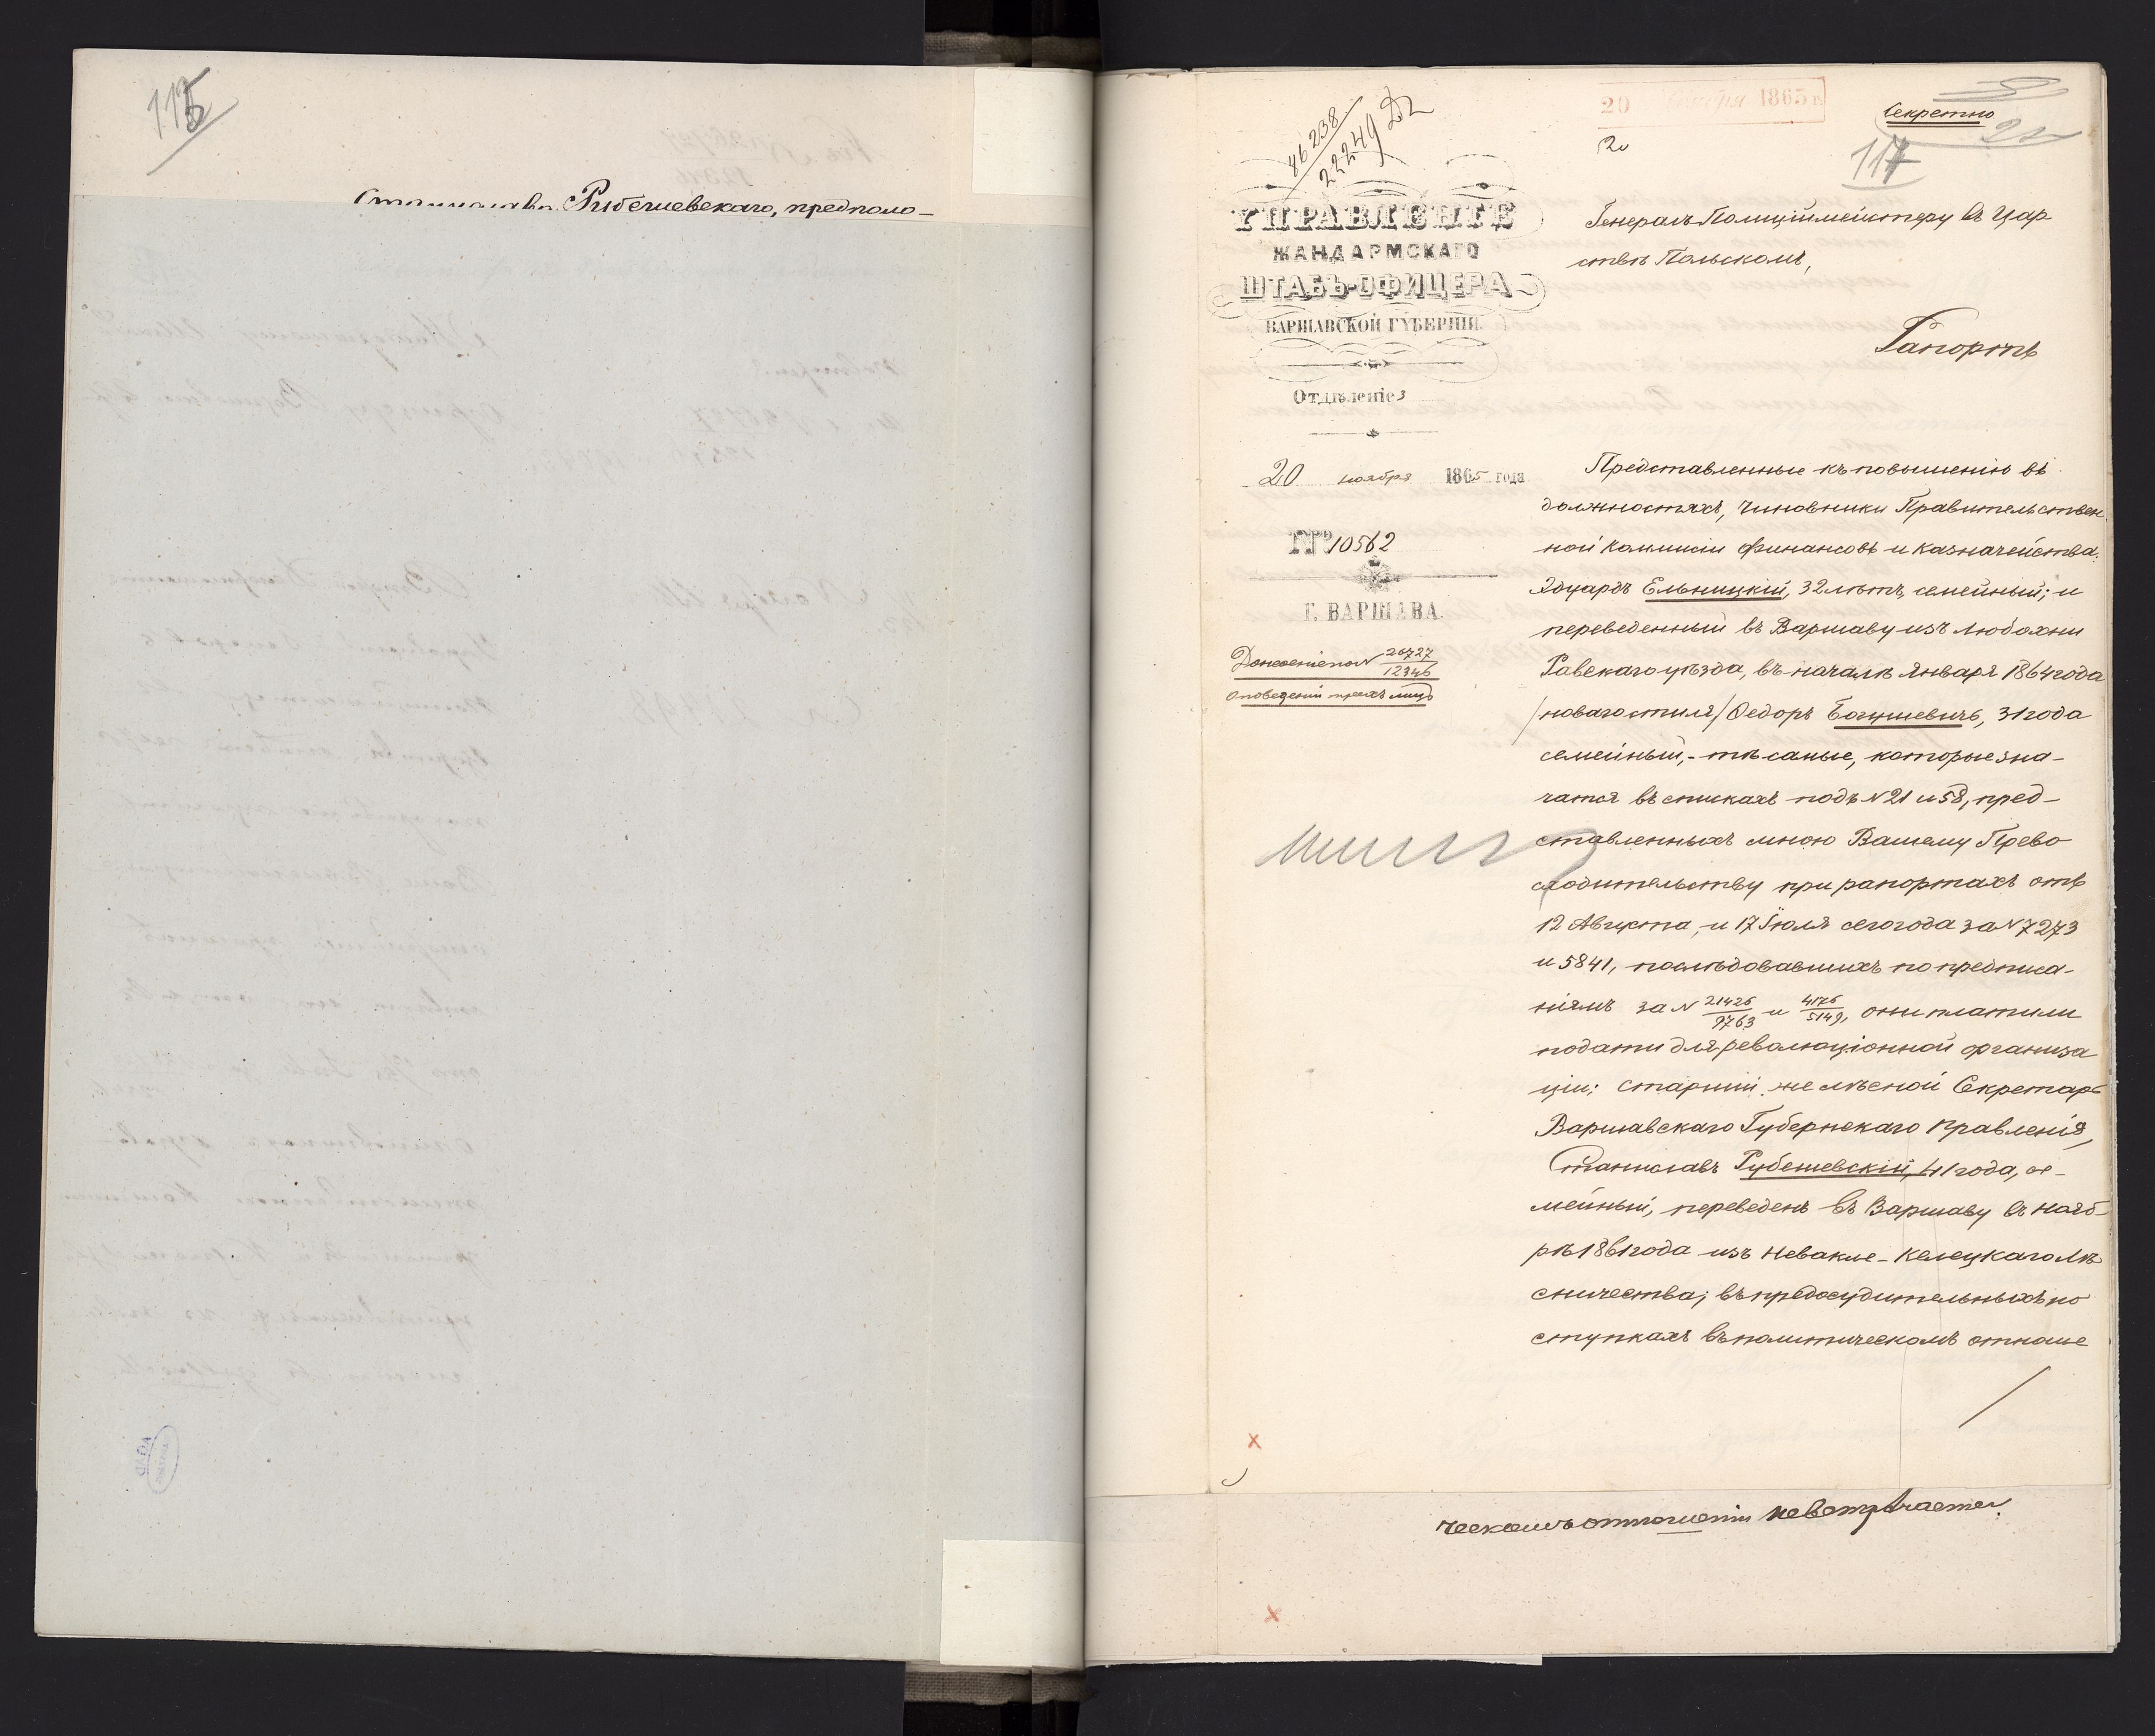 115
Станислава Рибешевскаго, предполо-
46238
22249 Д2
20 Ноября 1865 г.
Секретно
20
117
УПРАВЛЕНІЕ
ЖАНДАРМСКАГО
ШТАБЪ-ОФИЦЕРА
ВАРШАВСКОЙ ГУБЕРНІИ.
Отдѣленіе 3
20 ноября 1865 года
№ 10562
Г. ВАРШАВА.
Донесеніе на № 26727/12346
о поведеніи трехъ лицъ
Генералъ Полиціймейстеру въ Цар
ствѣ Польскомъ,
Рапортъ
Представленные къ повышенію въ
должностяхъ, чиновники Правительствен
ной Коммисіи Финансовъ и казначейства:
Эдуардъ Ельницкій, 32 лѣтъ, семейный; и
переведенный въ Варшаву изъ Любохни
Равскаго уѣзда, въ началѣ Января 1864 года
/новаго стиля/ Ѳедоръ Богушевичъ, 31 года
семейный,- тѣ самые, которые зна-
чатся въ спискахъ подъ № 21 и 58, пред-
ставленныхъ мною Вашему Прево
сходительству при рапортахъ отъ
12 Августа, и 17 Іюля сего года за № 7273
и 5841, послѣдовавшихъ по предписа-
ніямъ за № 21426/9763 и 4176/5149, они платили
подати для революціонной организа
ціи; старшій же лѣсной Секретарь
Варшавскаго Губернскаго Правленія,
Станиславъ Рубешевскій, 41 года, се-
мейный, переведенъ въ Варшаву въ нояб-
рѣ 1861 года изъ Невакле-Келецкаго Лѣ
сничества; въ предосудительныхъ по
ступкахъ въ политическомъ отноше
ческомъ отношеніи не встрѣчается.